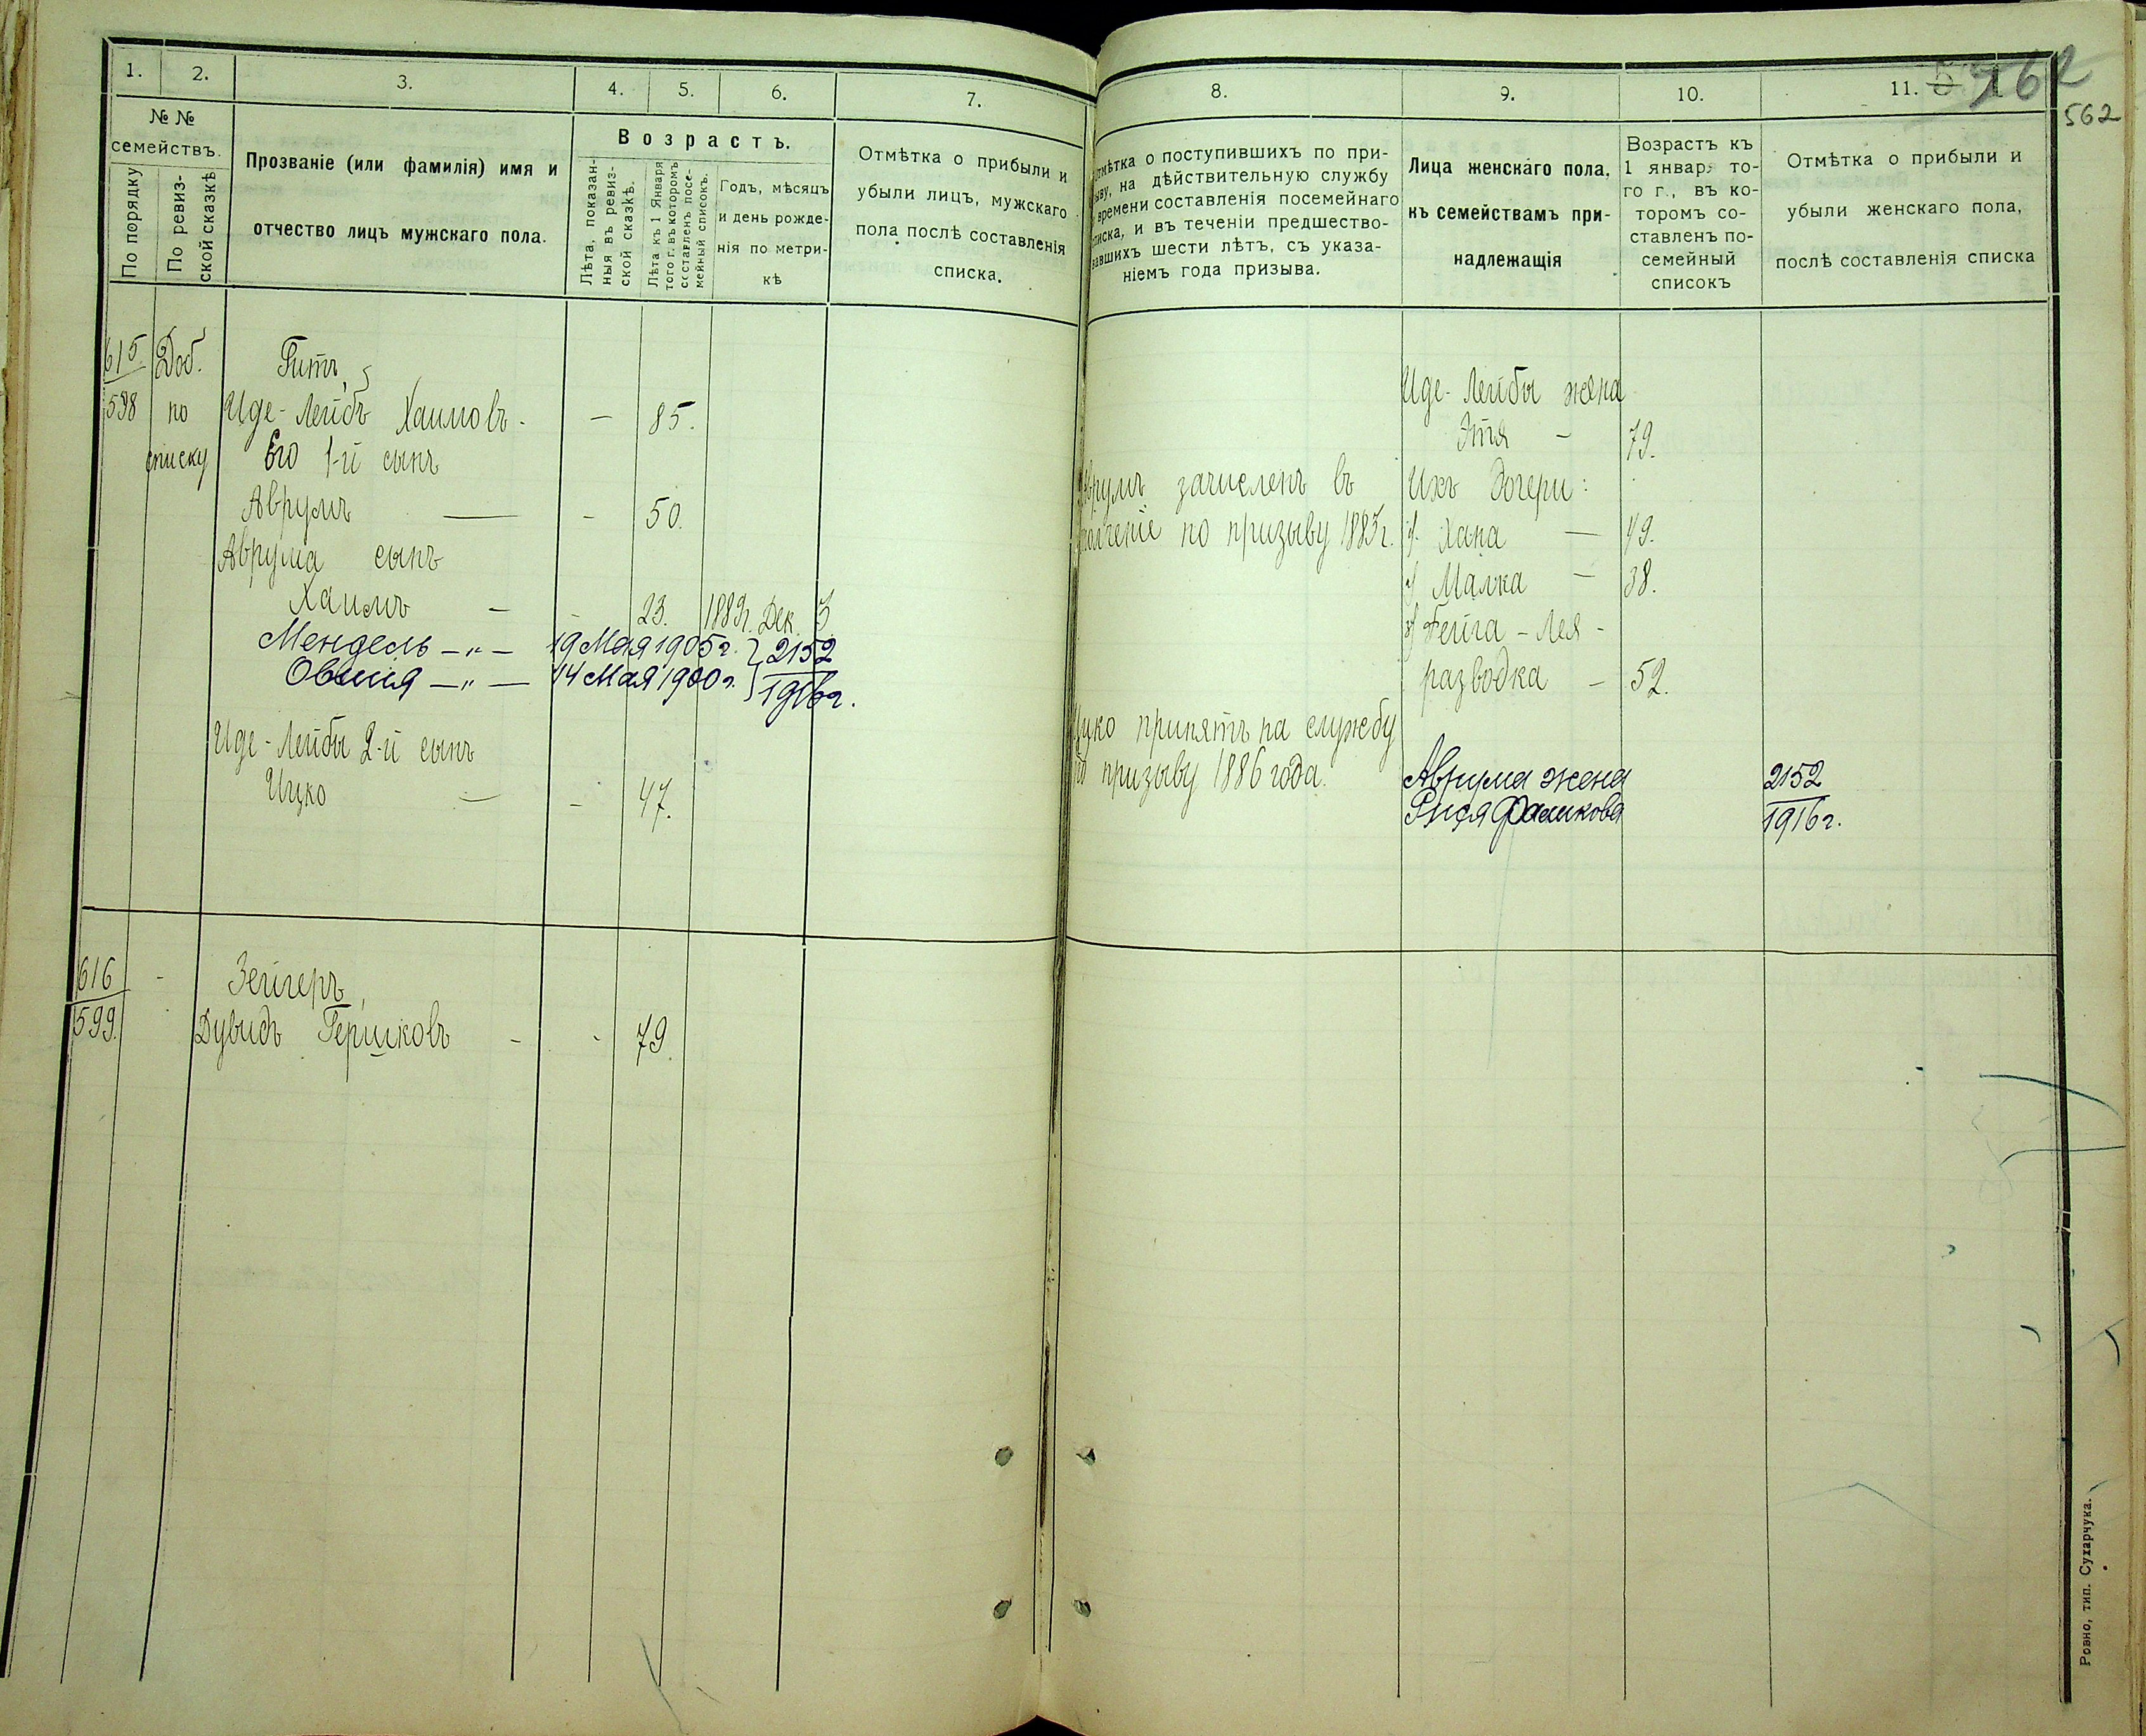 1.
2.
3.
4.
5.
6.
7.
№ №
семействъ.
По порядку
По ревиз-
ской сказкѣ
Прозваніе (или фамилія) имя и
отчество лицъ мужскаго пола.
Возрастъ.
Лѣта, показан-
ныя въ ревиз-
ской сказкѣ.
Лѣта къ 1 Января
того г. въ которомъ
составленъ посе-
мейный списокъ.
Годъ, мѣсяцъ
и день рожде-
нія по метри-
кѣ
Отмѣтка о прибыли и
убыли лицъ, мужскаго
пола послѣ составленія
списка.
615 Доб.
598 по
списку
Гитъ,
Иде-Лейбъ Хаимовъ - — 85.
Его 1-й сынъ
Аврумъ — - 50.
Аврума сынъ
Хаимъ - - 23. 1889г. Дек. 3
Мендель —„— 19 Мая 1905г. } 2152
Овшія —„— 14 Мая 1900г. } 1916г.
Иде-Лейбы 2-й сынъ
Ицко — - 47.
616 -
599.
Зейгеръ,
Дувидъ Гершковъ - - 79.
8.
9.
10.
11.
562
562
Отмѣтка о поступившихъ по при-
зыву, на дѣйствительную службу
времени составленія посемейнаго
списка, и въ теченіи предшество-
вавшихъ шести лѣтъ, съ указа-
ніемъ года призыва.
Лица женскаго пола,
къ семействамъ при-
надлежащія
Возрастъ къ
1 январ то-
го г., въ ко-
торомъ со-
ставленъ по-
семейный
списокъ
Отмѣтка о прибыли и
убыли женскаго пола,
послѣ составленія списка
Аврумъ зачисленъ въ
ополченіе по призыву 1885г.
Ицко принятъ на службу
по призыву 1886 года.
Иде-Лейбы жена
Этя - 79.
Ихъ дочери:
1) Хана — 49.
2) Малка — 38.
3) Бейга-Лея -
разводка - 52.
Аврума жена
Рися Фаликова
2152
1916г.
Ровно, тип. Сухарчука.